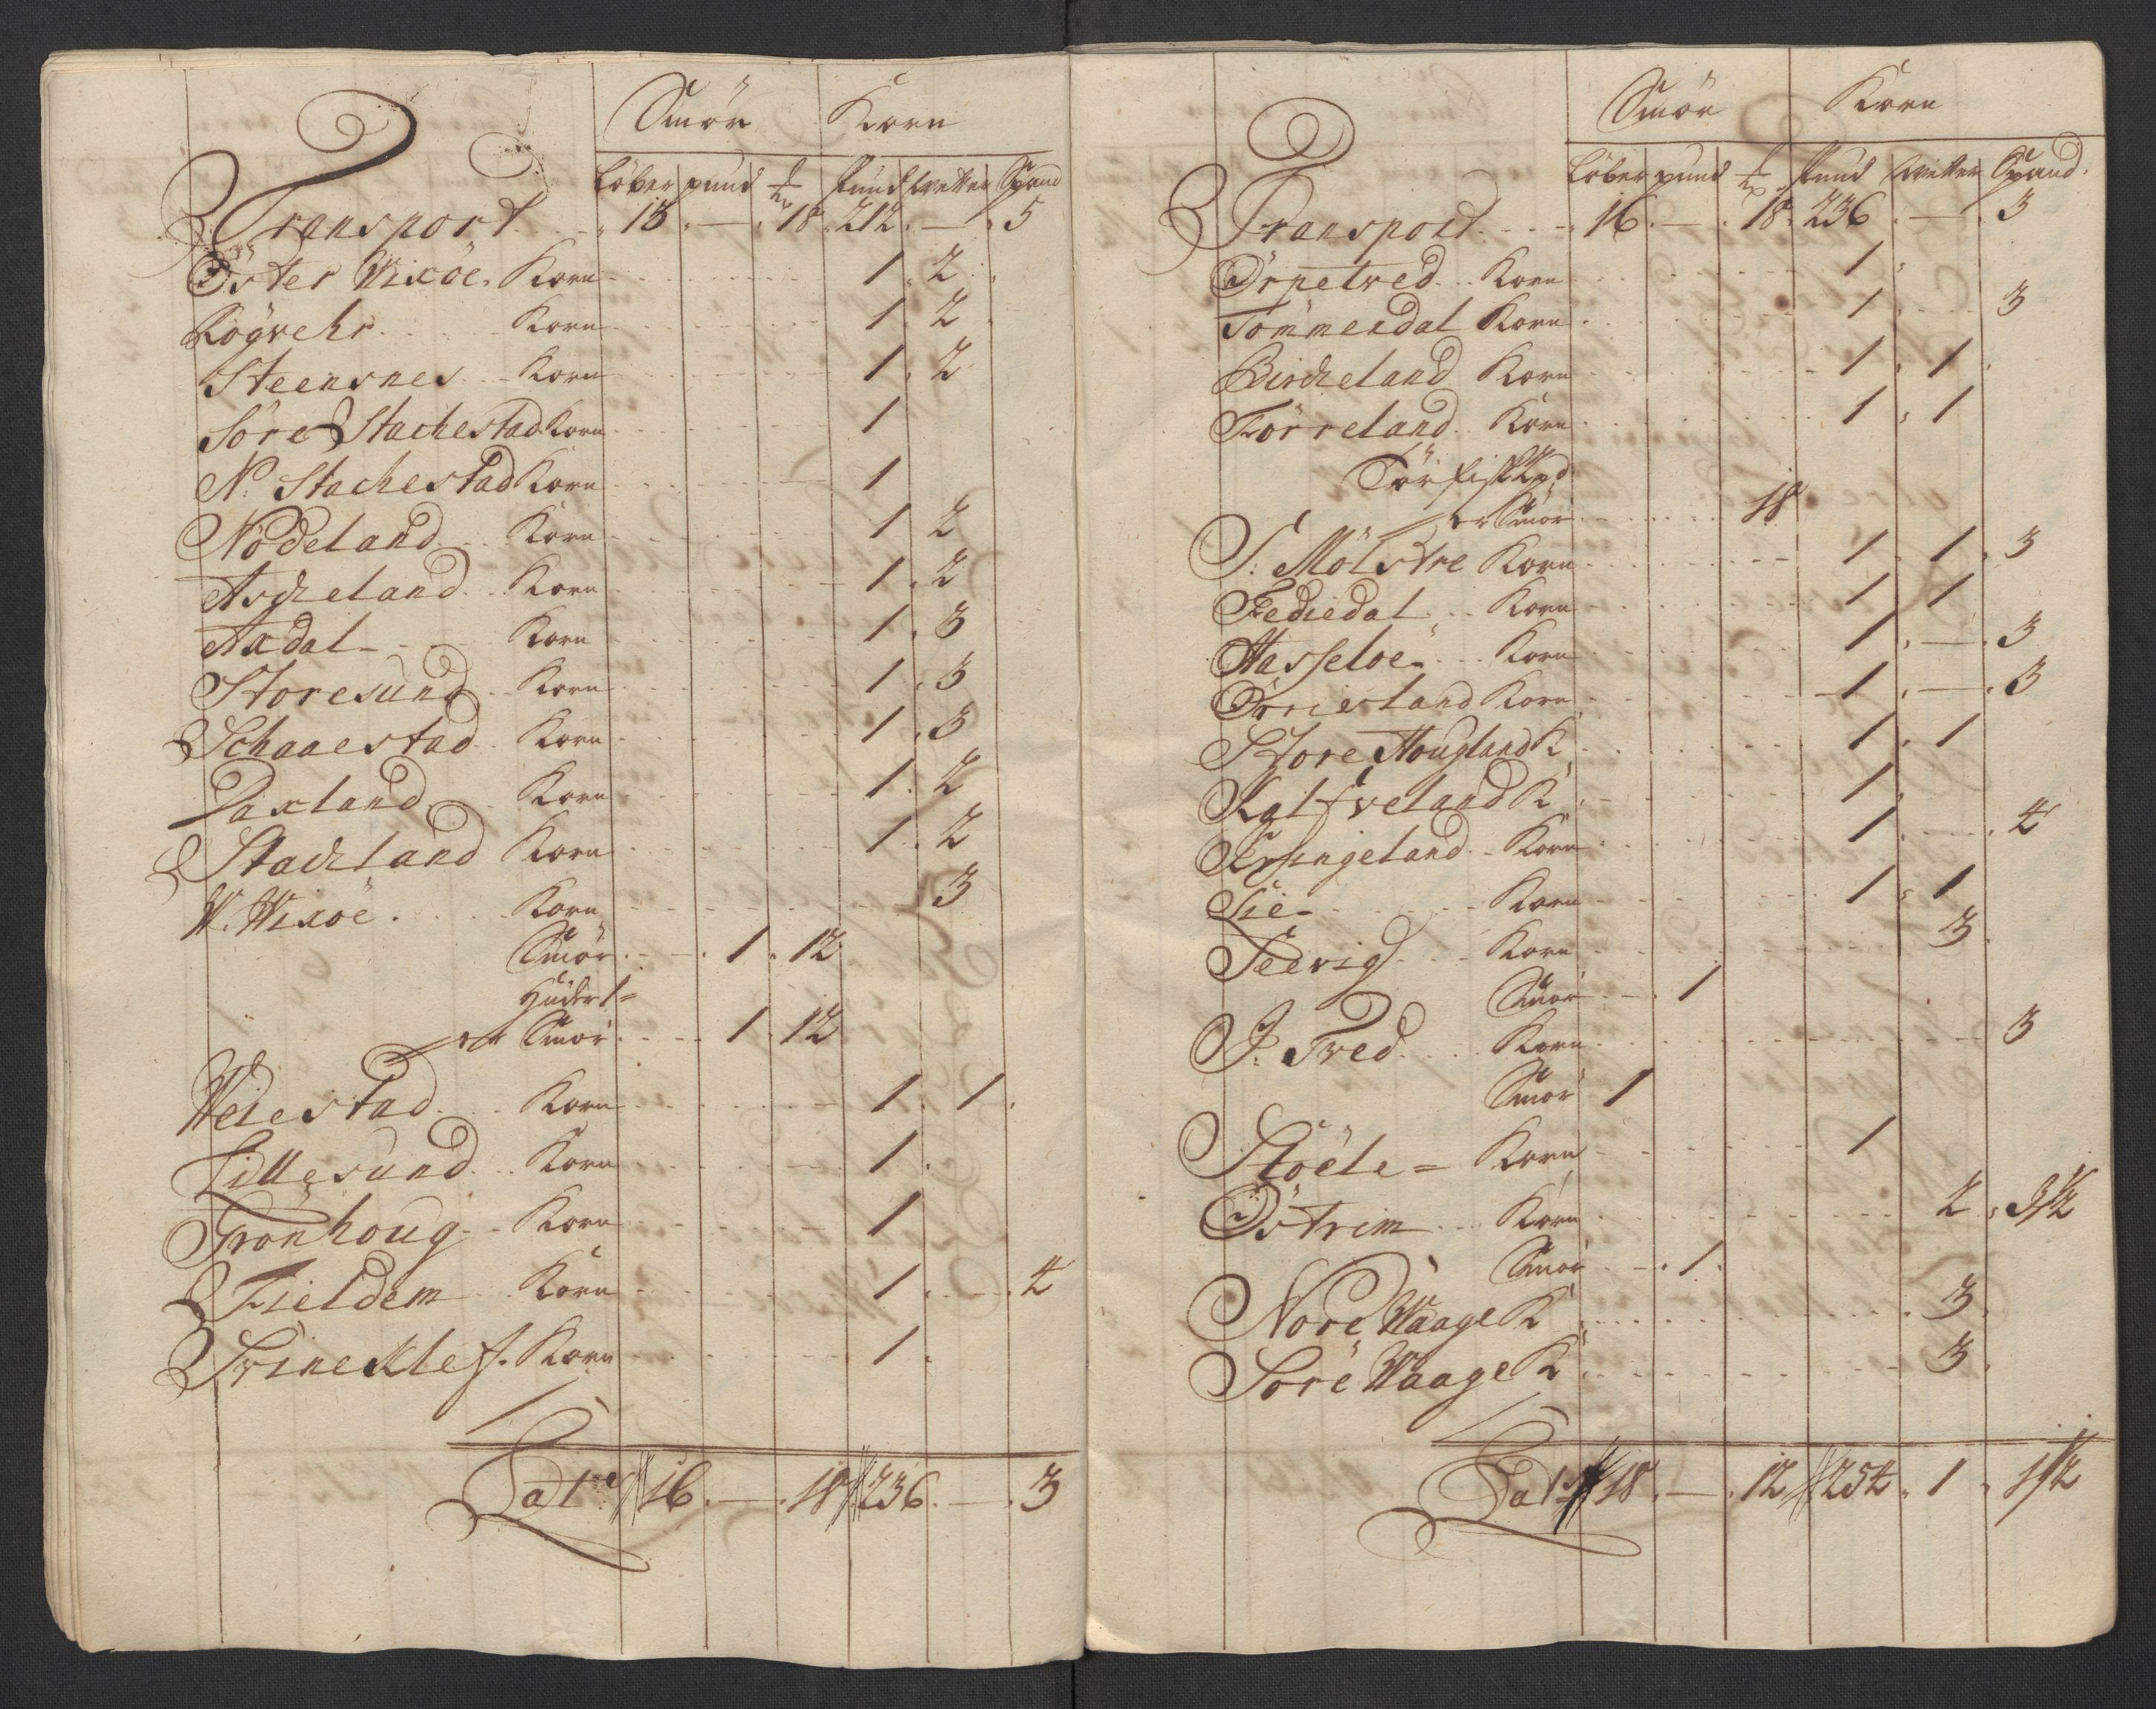 Smör Korn
Löber pund ℔ Pund Wetter Spand
Transport 15 — 18 212 — 5
Öster Wixöe Korn 1 2
Rögvehr Korn 1 2
Steensnes Korn 1 2
Söre Stachestad Korn 1
N. Stachestad Korn 1
Nödeland Korn 1 2
Ascheland Korn 1 2
Axdal Korn 1 3
Storesund Korn 1 3
Schaaestad Korn 1 3
Paxland Korn 1 2
Stachland Korn 1 2
W. Wixöe Korn 3
Smör 1 12
Huder 1
er Smör 1 12
Wedestad Korn 1 1
Lillesund Korn 1
Grönhoug Korn 1
Fieldem Korn 1 4
Svinekle f. Korn 1
Lat. 16 — 18 236 — 3
Smör Korn
Löber pund ℔ Pund Wetter Spand
Transport 16 — 18 236 — 3
Örpetved Korn 1
Tömmerdal Korn 1 3
Bircheland Korn 1 1
Förreland Korn 1 1
Törfisk
er Smör 18
S. Mölstre Korn 1 1 3
Fediedal Korn 1 1
Hasseloe Korn 1 — 3
Korn 1 — 3
Store Hougland K 1 1
Kalfveland K 1
Korn 1 4
Lie Korn 1 1
Seevig Korn 3
Smör 1
I. Tved Korn 3
Smör 1
Stöele Korn 1
Östrim Korn 2 3½
Smör 1
Nore Waage K 3
Söre Waage K 3
Lat. 18 — 12 254 1 1½